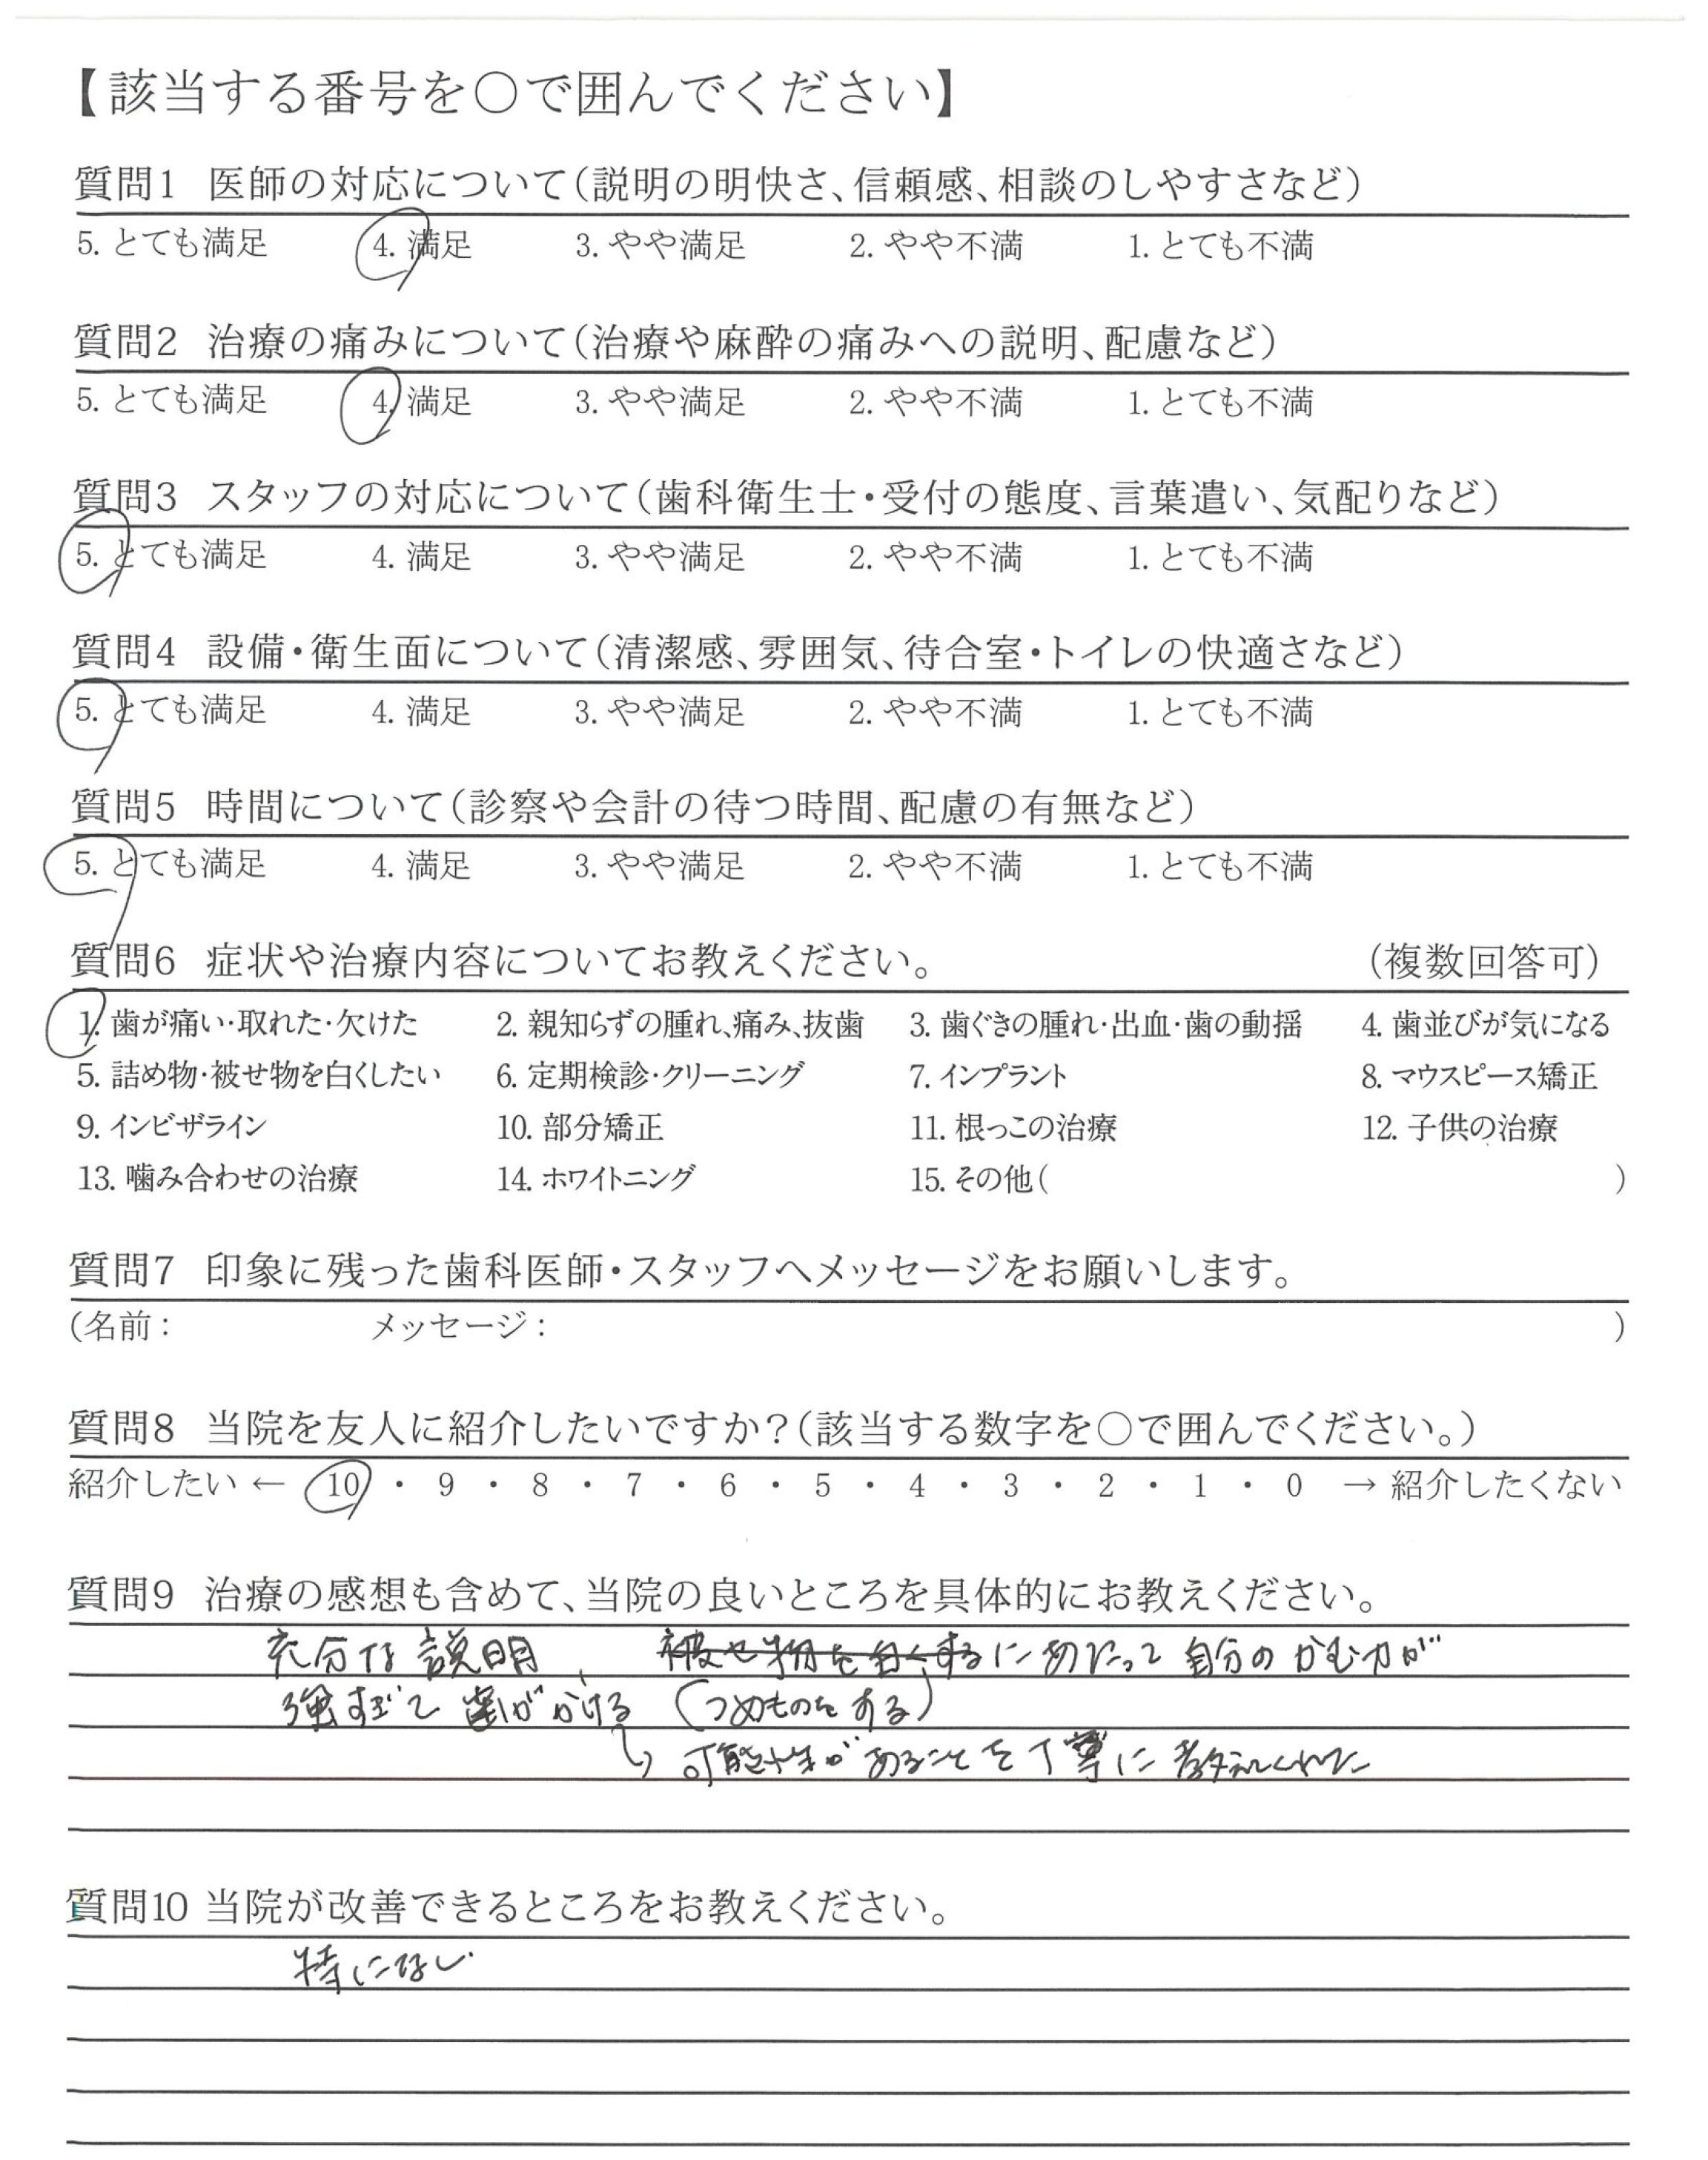 【該当する番号を○で囲んでください】
質問1 医師の対応について(説明の明快さ、信頼感、相談のしやすさなど)
5. とても満足 4. 満足 3. やや満足 2. やや不満 1. とても不満
質問2 治療の痛みについて(治療や麻酔の痛みへの説明、配慮など)
5. とても満足 4. 満足 3. やや満足 2. やや不満 1. とても不満
質問3 スタッフの対応について(歯科衛生士・受付の態度、言葉遣い、気配りなど)
5. とても満足 4. 満足 3. やや満足 2. やや不満 1. とても不満
質問4 設備・衛生面について(清潔感、雰囲気、待合室・トイレの快適さなど)
5. とても満足 4. 満足 3. やや満足 2. やや不満 1. とても不満
質問5 時間について(診察や会計の待つ時間、配慮の有無など)
5. とても満足 4. 満足 3. やや満足 2. やや不満 1. とても不満
質問6 症状や治療内容についてお教えください。 (複数回答可)
1. 歯が痛い・取れた・欠けた 2. 親知らずの腫れ、痛み、抜歯 3. 歯ぐきの腫れ・出血・歯の動揺 4. 歯並びが気になる
5. 詰め物・被せ物を白くしたい 6. 定期検診・クリーニング 7. インプラント 8. マウスピース矯正
9. インビザライン 10. 部分矯正 11. 根っこの治療 12. 子供の治療
13. 噛み合わせの治療 14. ホワイトニング 15. その他( )
質問7 印象に残った歯科医師・スタッフへメッセージをお願いします。
(名前: メッセージ: )
質問8 当院を友人に紹介したいですか?(該当する数字を○で囲んでください。)
紹介したい ← 10 ・ 9 ・ 8 ・ 7 ・ 6 ・ 5 ・ 4 ・ 3 ・ 2 ・ 1 ・ 0 → 紹介したくない
質問9 治療の感想も含めて、当院の良いところを具体的にお教えください。
充分な説明、 被せ物を白くするにあたって 自分のかむ力が
強すぎて 歯がかける (つめものをする)
↳ 可能性があることを丁寧に教えてくれた
質問10 当院が改善できるところをお教えください。
特になし